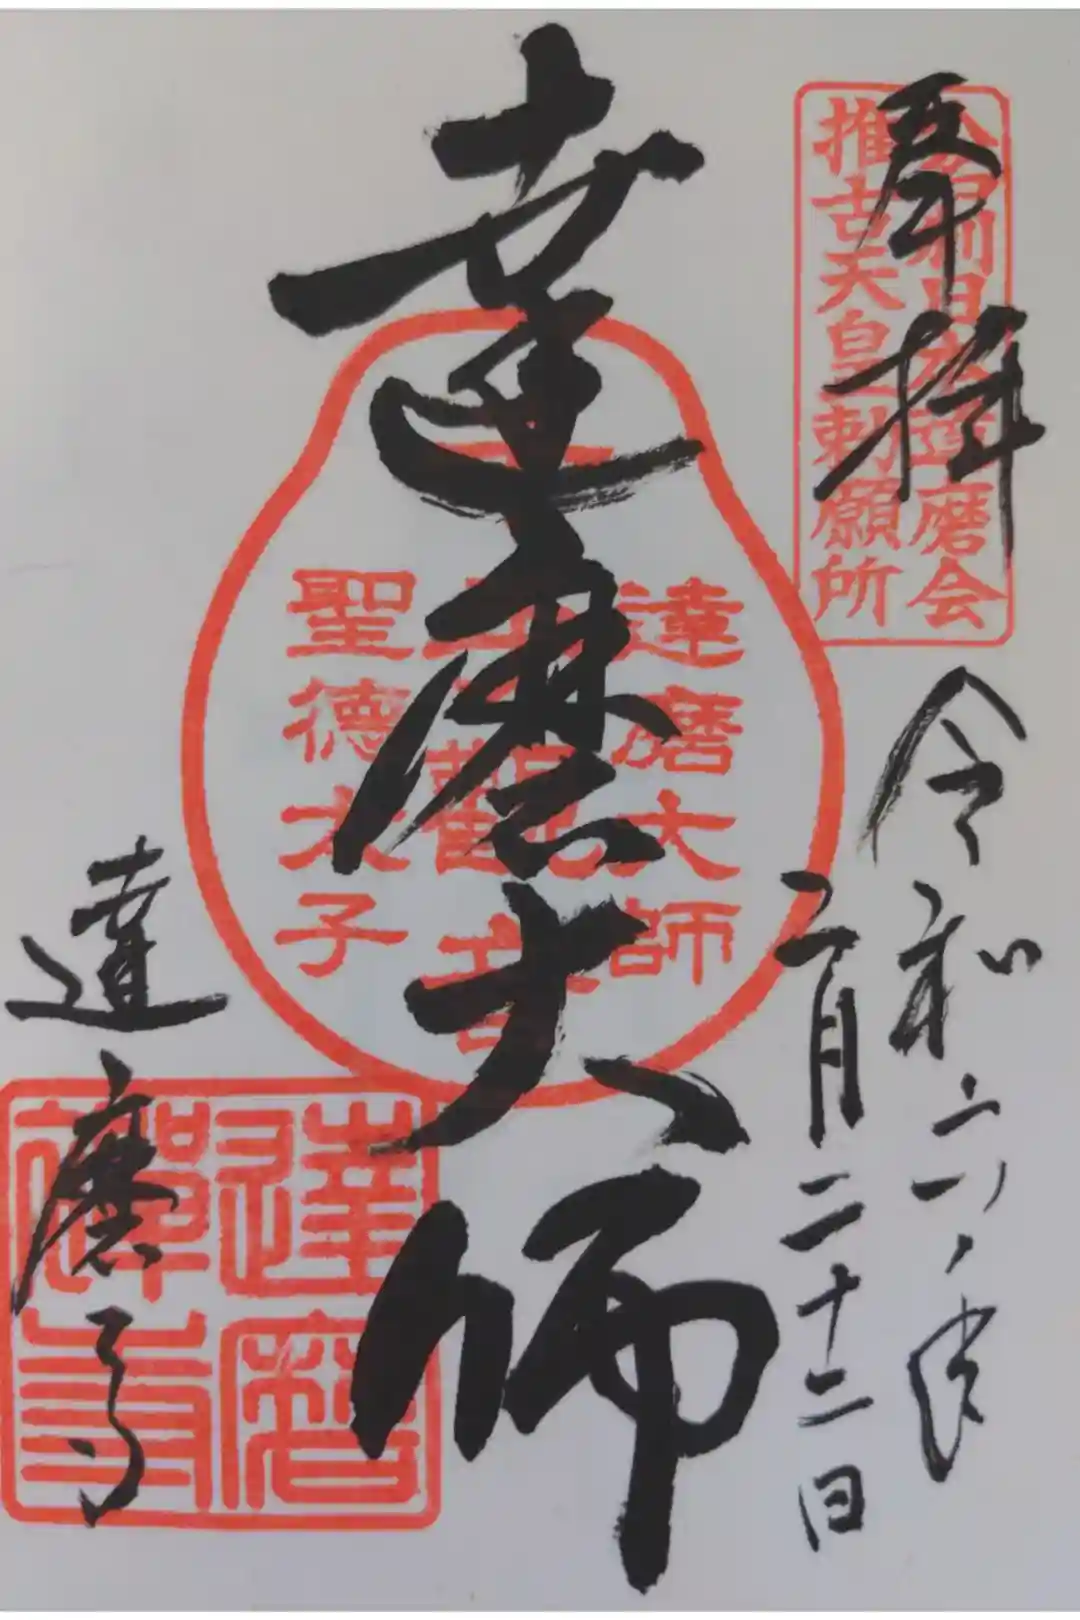 奉拝
日本達磨会
推古天皇勅願所
令和六年
二月二十二日
達磨大師
達磨大師
千手観音
聖徳太子
達磨寺
達磨
禅寺